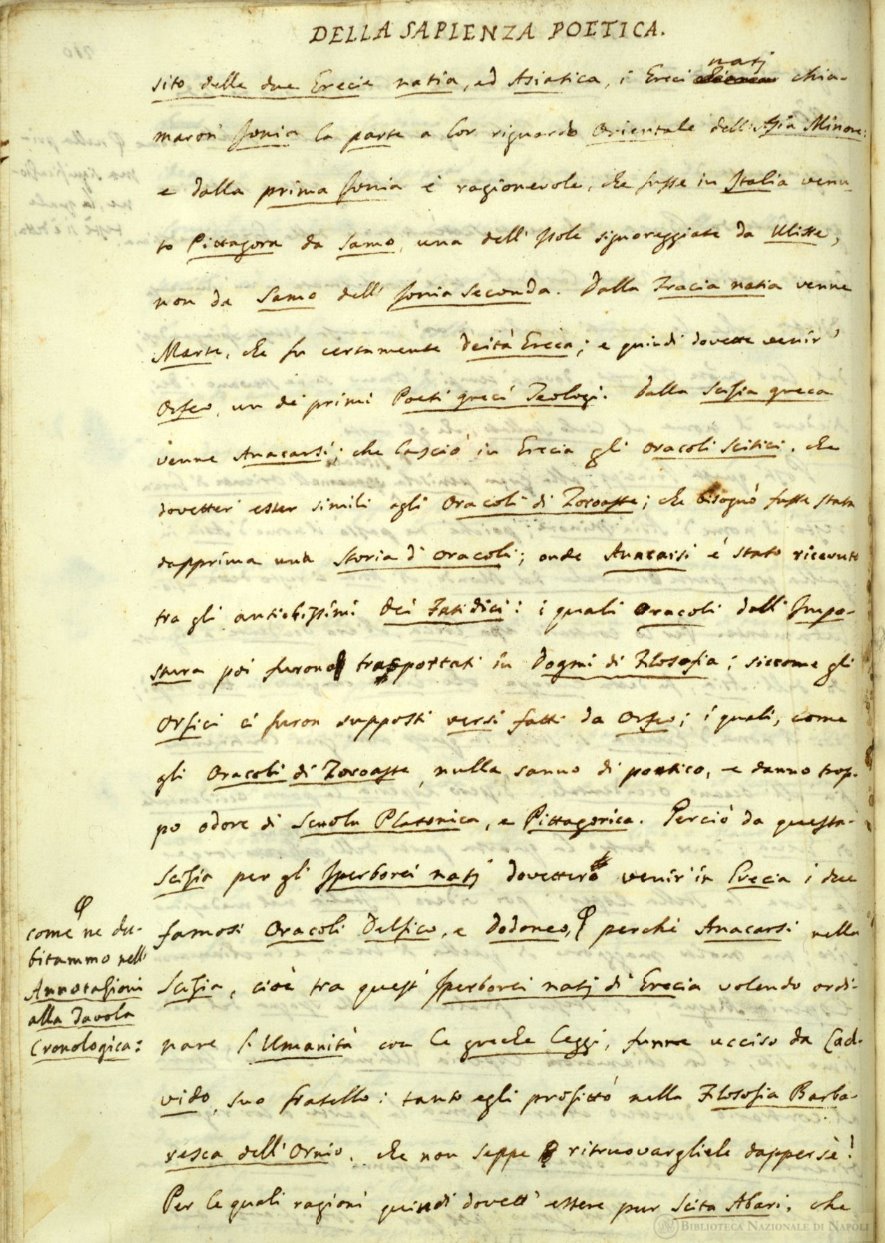 DELLA SAPIENZA POETICA.
sito delle due Grecie natia, ed Asiatica, i Greci natj chia-
maron Jonia la parte a lor riguardo Orientale dell'Asia Minore:
e dalla prima Jonia è ragionevole, che fusse in Italia venu
to Pittagora da Samo, una dell'Isole signoreggiate da Ulisse,
non da Samo dell'Jonia seconda. Dalla Tracia natia venne
Marte, che fu certamente Deità Greca; e quindi dovette venir'
Orfeo, un de' primi Poeti greci Teologi. Dalla Scizia greca
venne Anacarsi, che lasciò in Grecia gli oracoli Scitici, che
dovetter' esser simili agli Oracoli di Zoroaste; che bisognò fusse stata
dapprima una Storia d'oracoli; onde Anacarsi è stato ricevuto
tra gli antichissimi Dei Fatidici: i quali oracoli dall'Impo-
stura poi furono trasportati in Dogmi di Filosofia; siccome gli
Orfici ci furon supposti versi fatti da Orfeo; i quali, come
gli Oracoli di Zoroaste, nulla sanno di poetico, e danno trop-
po odore di Scuola Platonica, e Pittagorica. Perciò da questa
Scizia per gli Iperborei natj dovettero venir' in Grecia i due
famosi Oracoli Delfico, e Dodoneo, perchè Anacarsi nella
come ne du-
bitammo nell'
Annotazioni
alla Tavola
Cronologica:
Scizia, cioè tra quest' Iperborei natj di Grecia volendo ordi-
nare l'Umanità con le greche leggi, funne ucciso da Cad-
vido, suo fratello: tanto egli profittò nella Filosofia Barba-
resca dell'Ornio, che non seppe ritruovargliele dappersè!
Per le quali ragioni quindi dovett' essere pur Scita Abari, che
BIBLIOTECA NAZIONALE DI NAPOLI